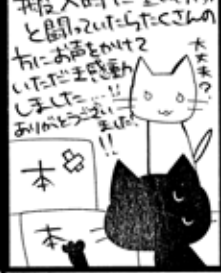 と闘っていたらたくさんの
方にお声をかけて
いただき感動
しました…!!
ありがとうござい
ました!
!!
大丈夫?
本
本